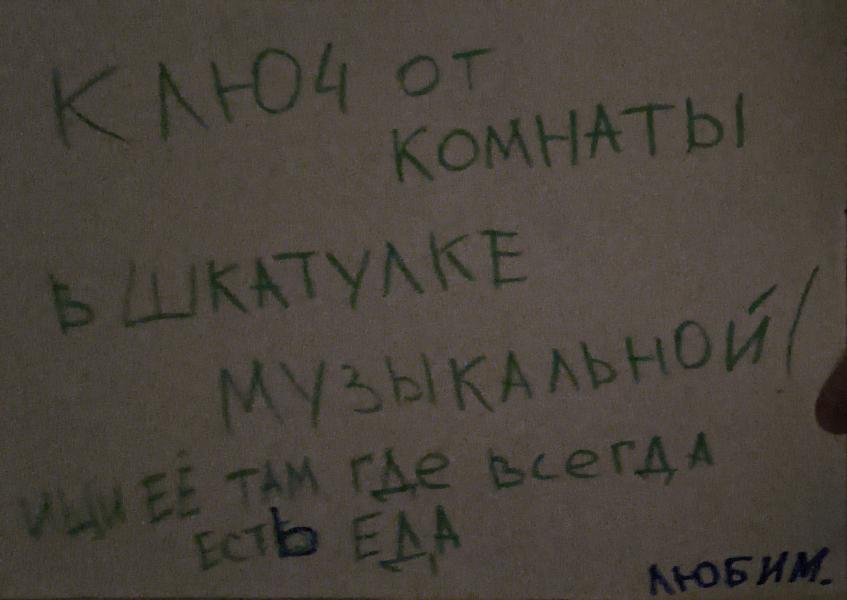 КЛЮЧ ОТ
КОМНАТЫ
В ШКАТУЛКЕ
МУЗЫКАЛЬНОЙ!
ИЩИ ЕЁ ТАМ ГДЕ ВСЕГДА
ЕСТЬ ЕДА
ЛЮБИМ.